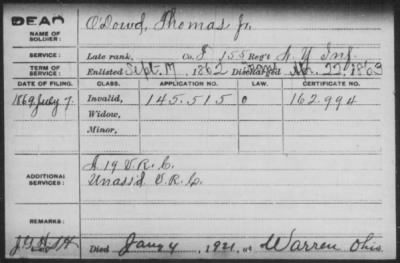 DEAD
NAME OF SOLDIER: O'Dowd, Thomas Jr.
SERVICE: Late rank, Co. I 155 Reg't N.Y. Inf.
TERM OF SERVICE: Enlisted Sept. 17, 1862 Discharged 22, 1863
DATE OF FILING. CLASS. APPLICATION NO. LAW. CERTIFICATE NO.
1869 July 7. Invalid, 145.515 0 162.994
Widow,
Minor,
ADDITIONAL SERVICES: I 19 V.R.C.
Unass'd V.R.C.
REMARKS:
Died Jany 4, 1921, at Warren Ohio